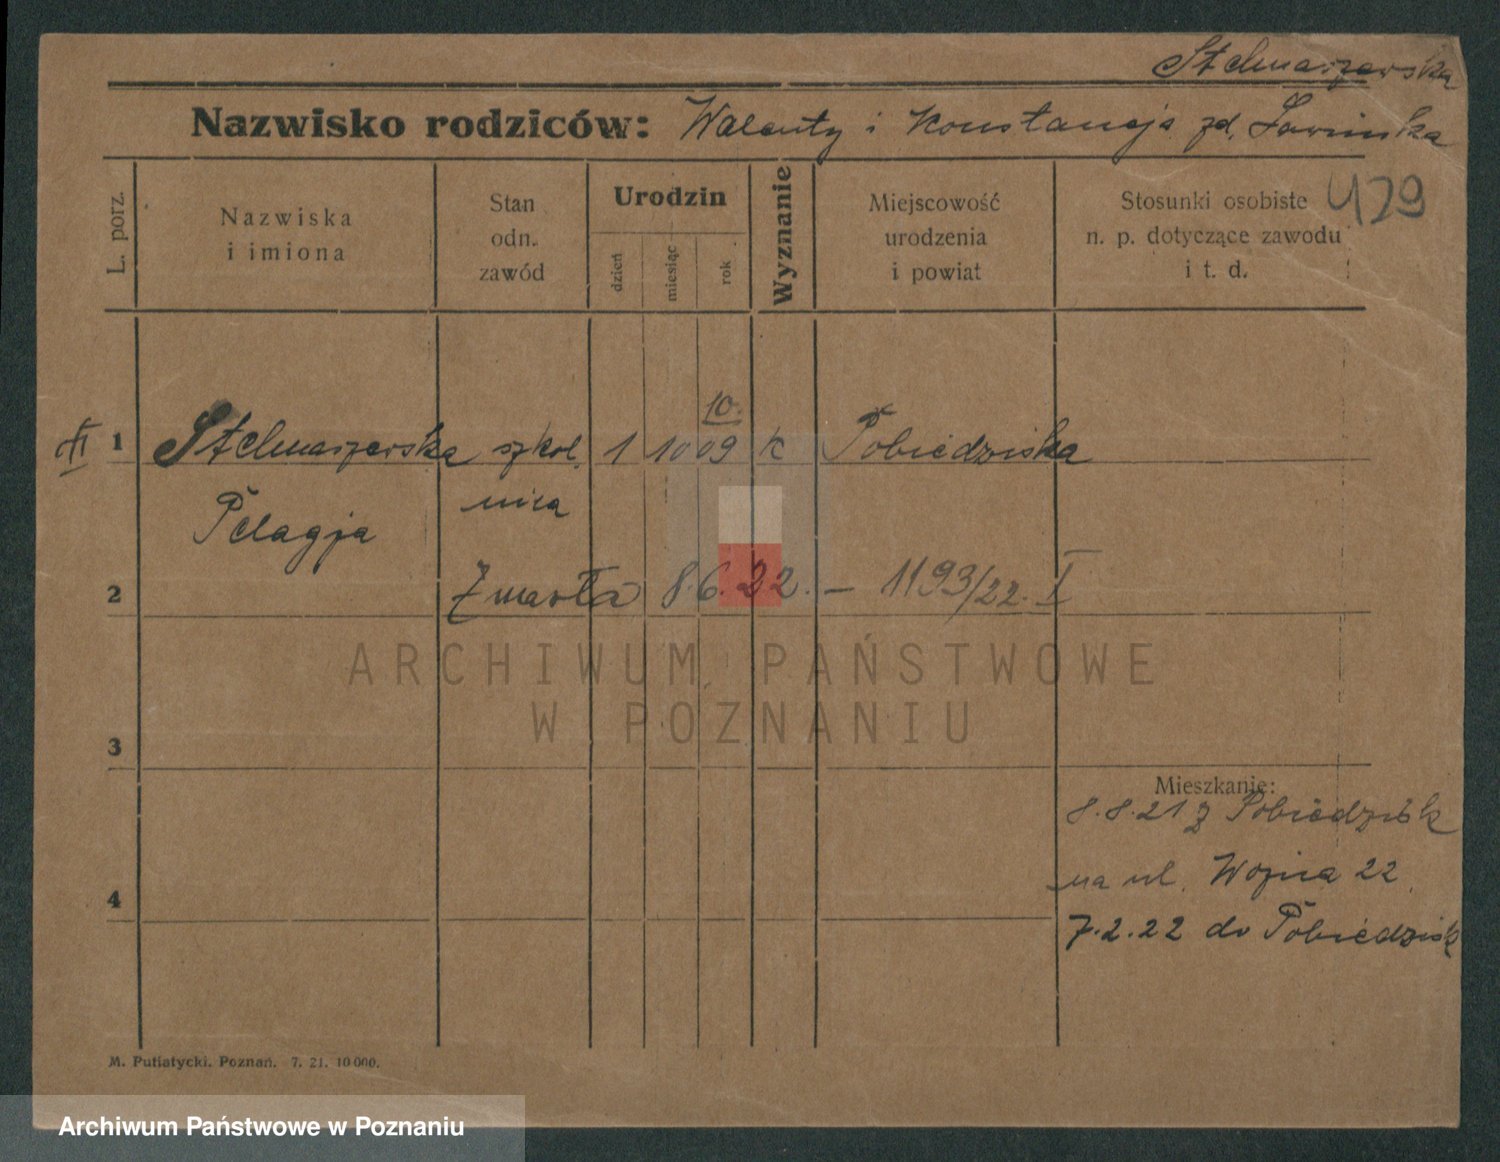 Stelmaszewska
Nazwisko rodziców: Walenty i Konstancja zd.
L. porz.
Nazwiska
i imiona
Stan
odn.
zawód
Urodzin
dzień
miesiąc
rok
Wyznanie
Miejscowość
urodzenia
i powiat
Stosunki osobiste
n. p. dotyczące zawodu
i t. d.
429
10.
1 Stelmaszewska szkol. 1 10 09 K Pobiedziska
Pelagja nica
2 Zmarła 8.6.22. — 1193/22. I
ARCHIWUM PAŃSTWOWE
W POZNANIU
3
Mieszkanie:
8.8.21 z Pobiedzisk
na ul. Wozna 22.
4
7.2.22 do Pobiedzisk
M. Putiatycki. Poznań. 7. 21. 10 000.
Archiwum Państwowe w Poznaniu